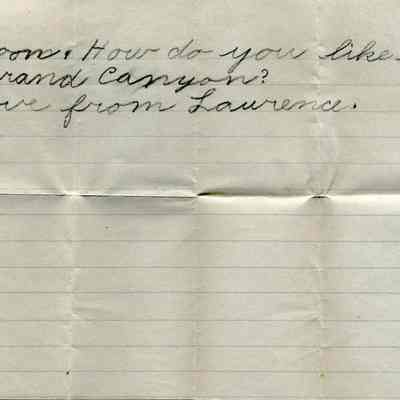 oon. How do you like
rand Canyon?
ve from Lawrence.